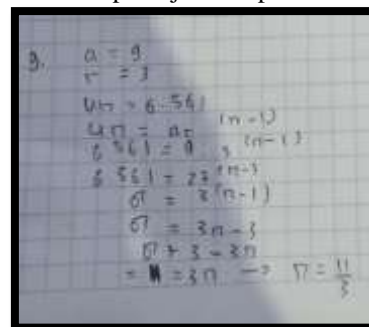 9. a = 9
r = 3
Un = 6.561
Un = ar^(n-1)
6561 = 9 . 3^(n-1)
6561 = 27^(n-1)
8 = 3(n-1)
8 = 3n - 3
8 + 3 = 3n
= 11 = 3n → n = 11/3